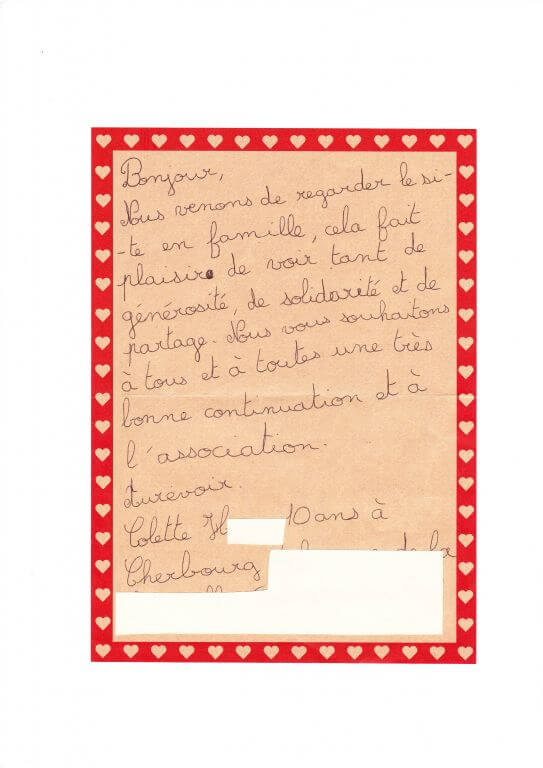 Bonjour,
Nous venons de regarder le si-
-te en famille, cela fait
plaisir de voir tant de
générosité, de solidarité et de
partage. Nous vous souhaitons
à tous et à toutes une très
bonne continuation et à
l'association.
Aurevoir.
Colette H 10 ans à
Cherbourg de la